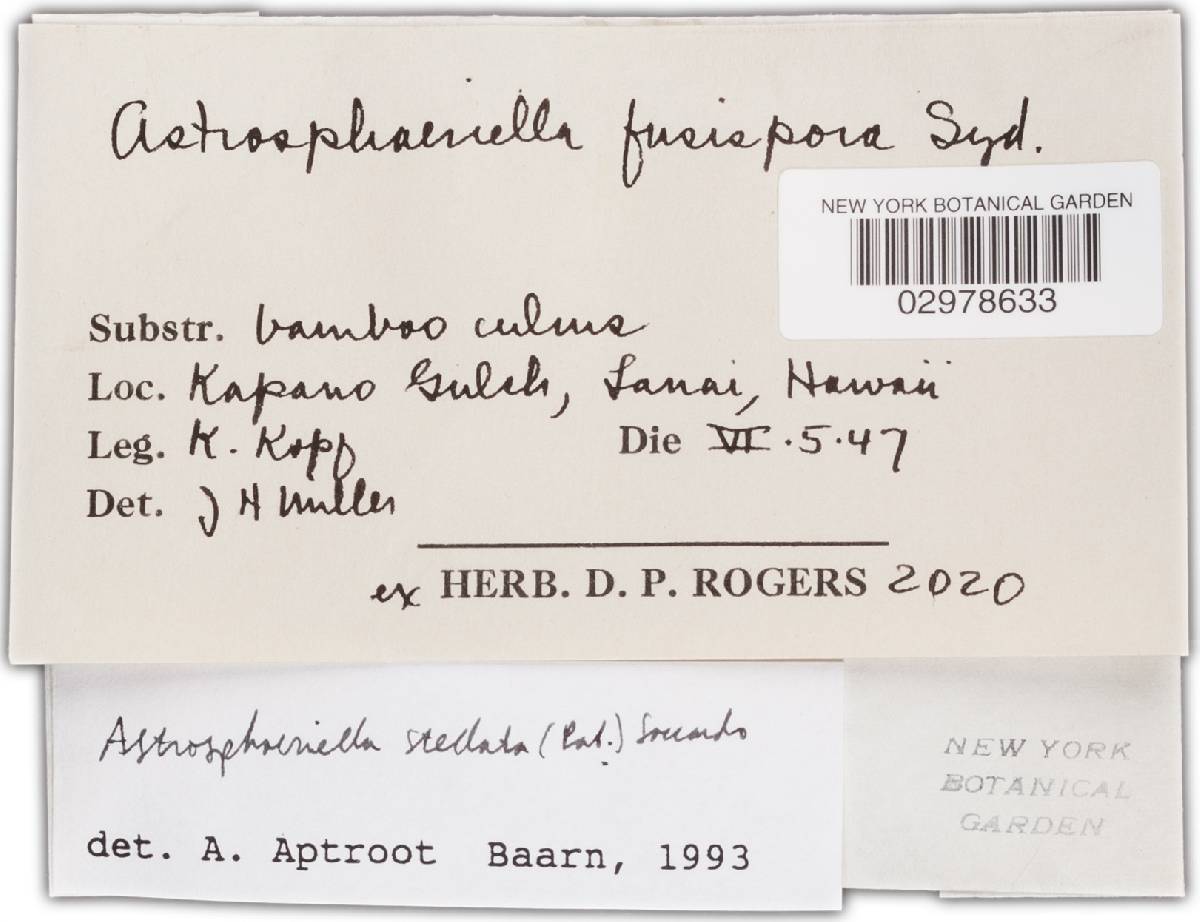 Astrosphaeriella fusispora Syd.
NEW YORK BOTANICAL GARDEN
02978633
Substr. bamboo culms
Loc. Kapano Gulch, Lanai, Hawaii
Leg. K. Kopf Die VI·5·47
Det. J H Miller
ex HERB. D. P. ROGERS 2020
Astrosphaeriella stellata (Pat.) Saccardo
det. A. Aptroot Baarn, 1993
NEW YORK
BOTANICAL
GARDEN